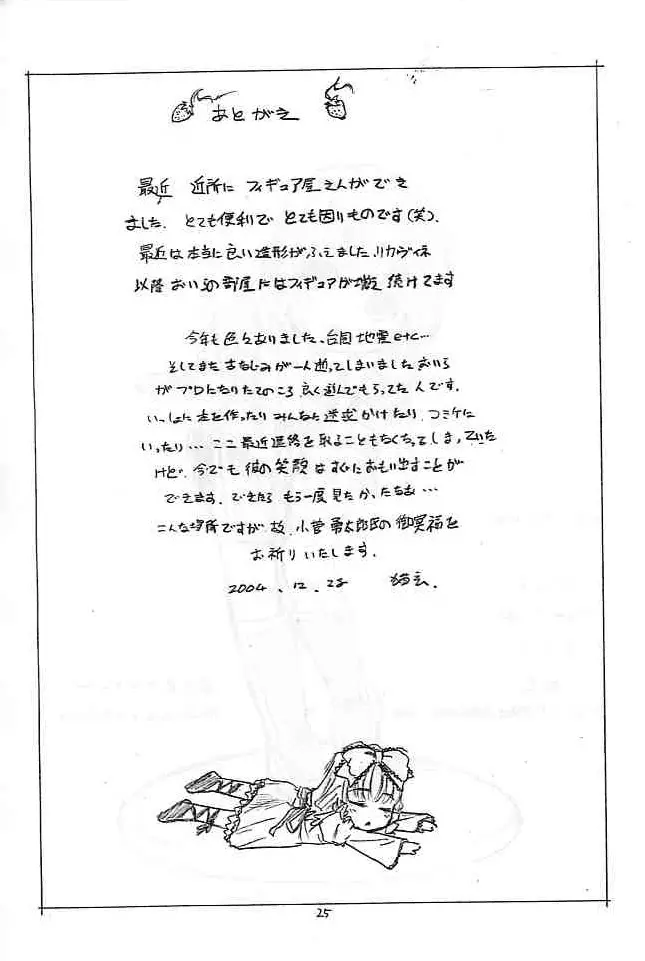 あとがき
最近 近所に フィギュア屋さんができ
ました. とても便利で とても困りものです(笑).
最近は本当に良い造形がふえました.リカヴィネ
以降 おいらの部屋にはフィギュアが増え続けてます
今年も色々ありました、台風 地震 etc…
そしてまた おさなじみが一人逝ってしまいました おいら
がプロになりたてのころ 良く遊んでもらってた人です.
いっしょに本を作ったり みんなに迷惑かけたり コミケに
いったり… ここ最近連絡を取ることもなくなってしまっていた
けど. 今でも彼の笑顔はすぐにおもい出すことが
できます. できたら もう一度見たかったなあ…
こんな場所ですが 故. 小菅 勇太郎氏の御冥福を
お祈りいたします.
2004. 12. 28
25